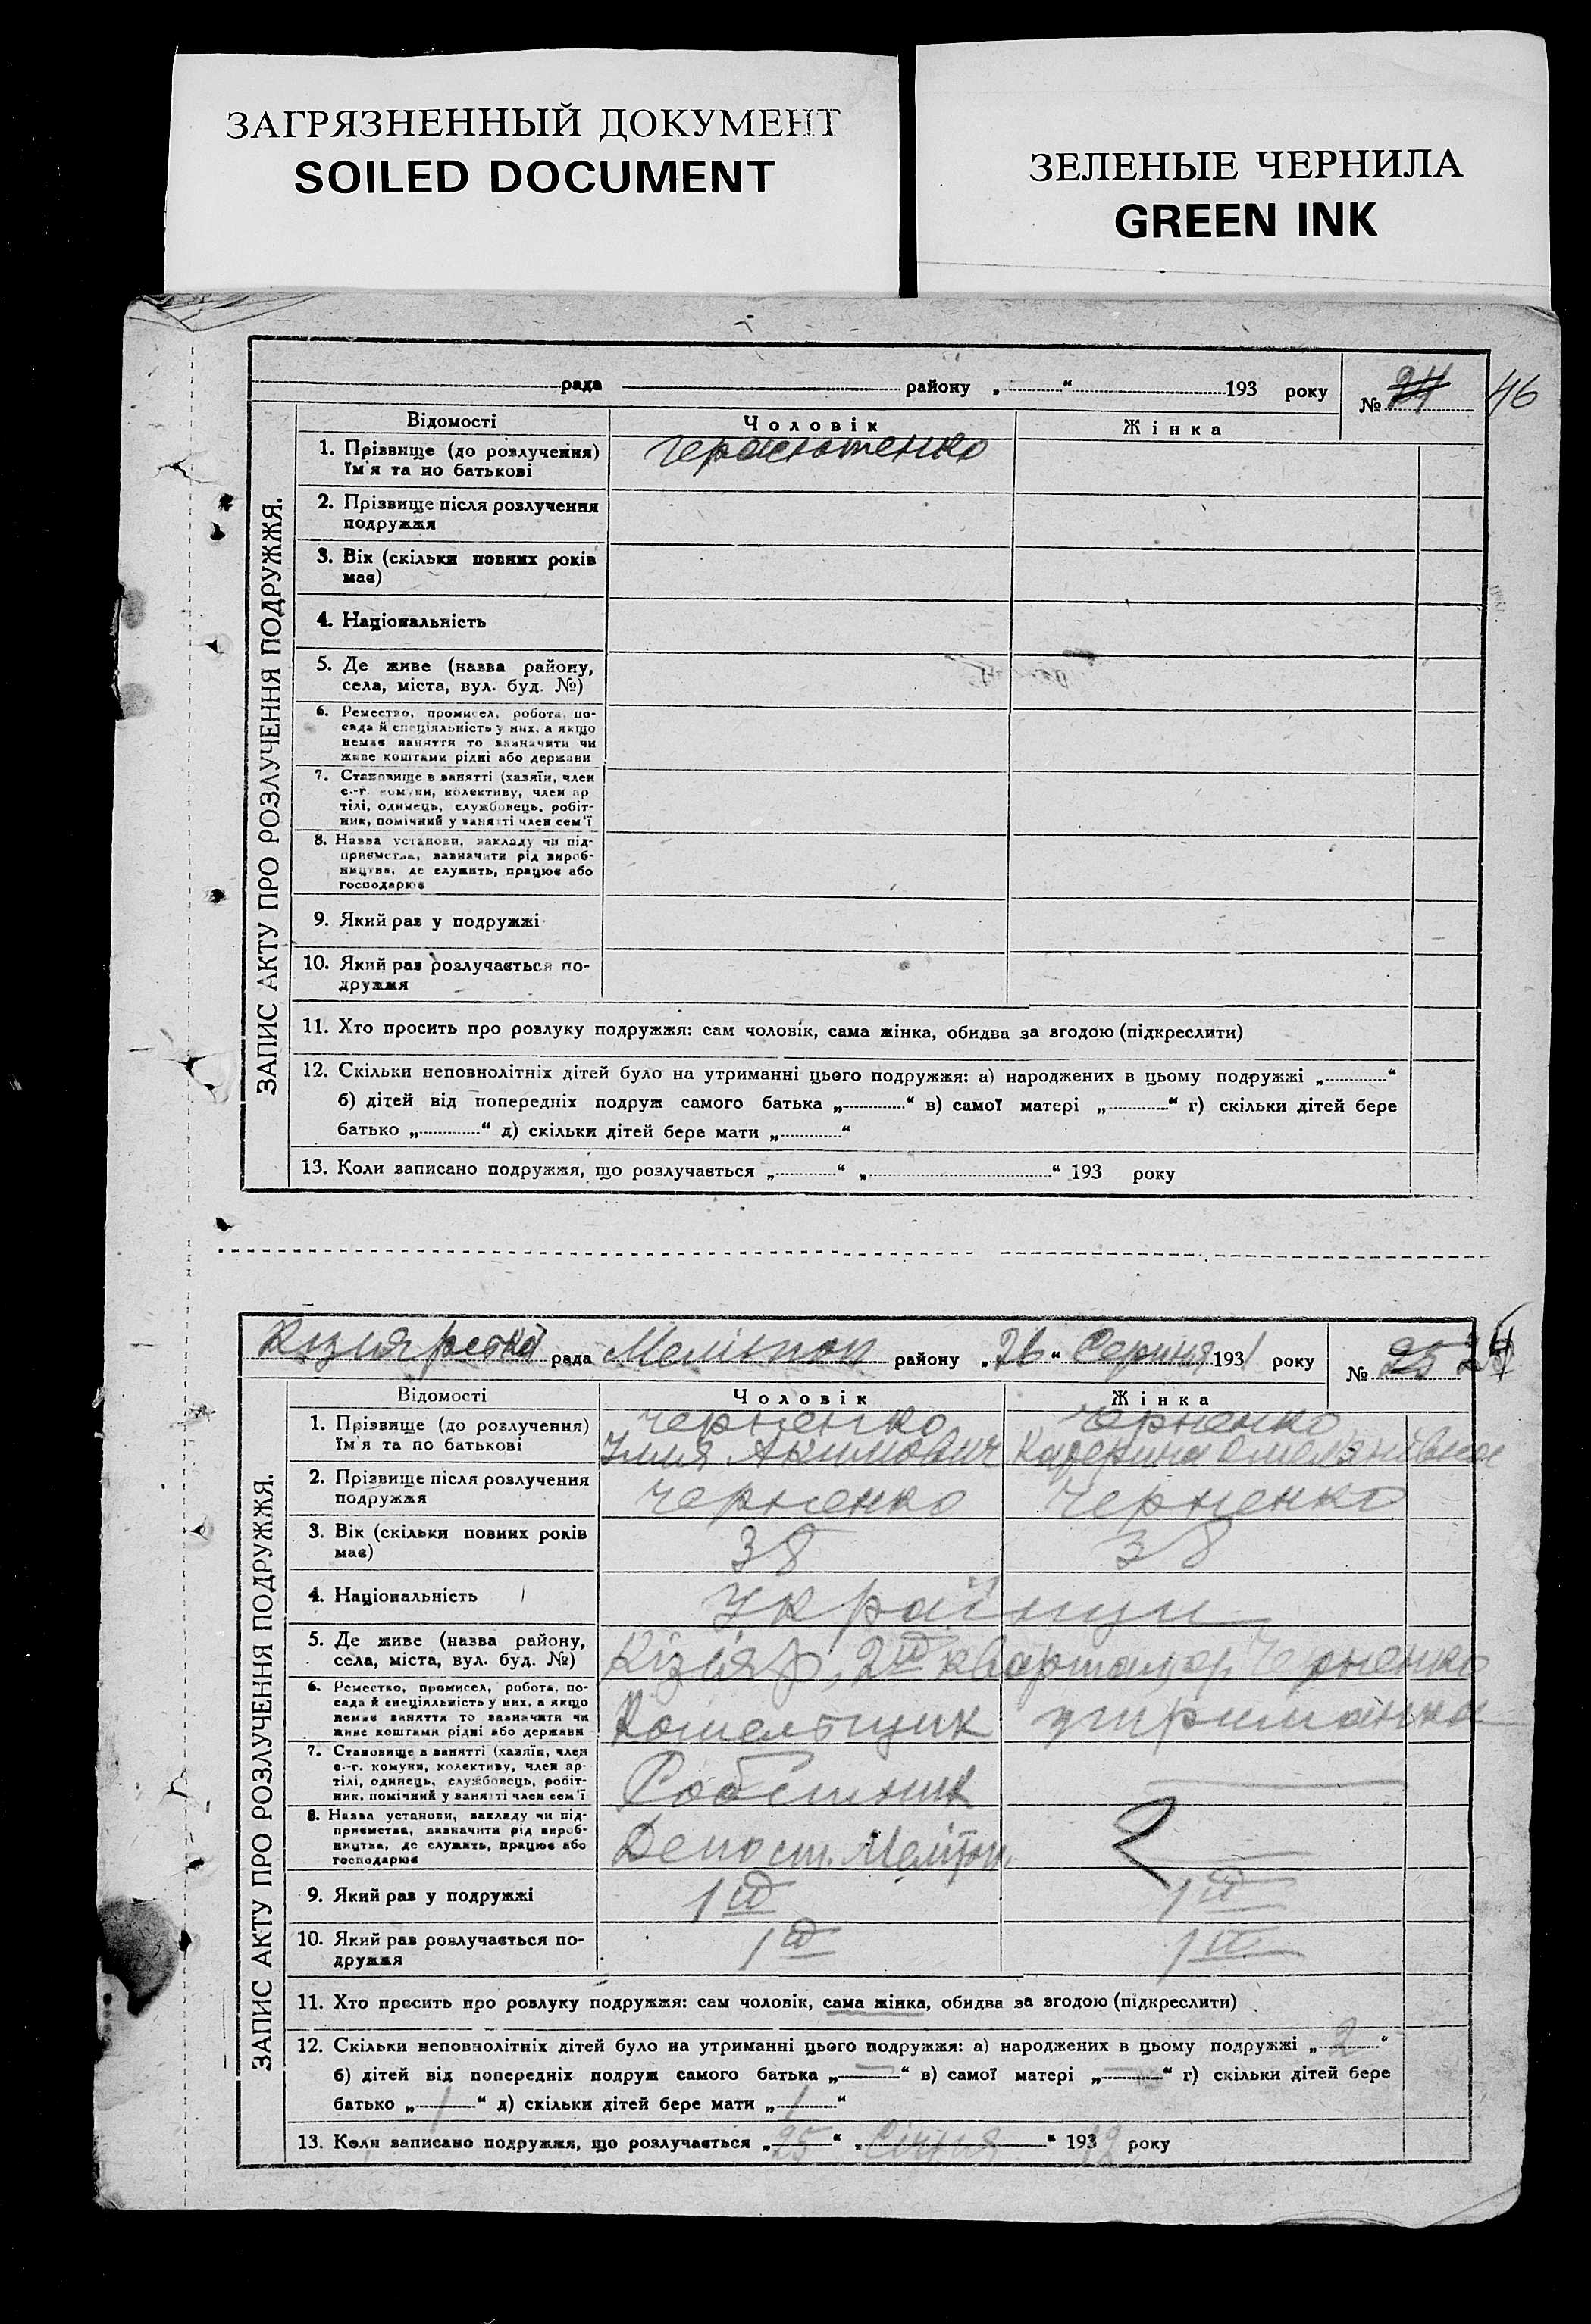 ЗАГРЯЗНЕННЫЙ ДОКУМЕНТ
SOILED DOCUMENT
ЗЕЛЕНЫЕ ЧЕРНИЛА
GREEN INK
рада района „ “ 193 року № 24 46
ЗАПИС АКТУ ПРО РОЗЛУЧЕННЯ ПОДРУЖЖЯ.
Відомості Чоловік Жінка
1. Прізвище (до розлучення)
їм'я та по батькові
2. Прізвище після розлучення
подружжя
3. Вік (скільки повних років
має)
4. Національність
5. Де живе (назва району,
села, міста, вул. буд. №)
6. Ремество, промисел, робота, по-
сада й спеціяльність у них, а якщо
немає заняття то зазначити чи
живе коштами рідні або держави
7. Становище в занятті (хазяїн, член
с.-г. комуни, колективу, член ар
тілі, одинець, службовець, робіт-
ник, помічний у занятті член сем'ї
8. Назва установи, закладу чи під-
приємства, зазначити рід вироб-
ництва, де служить, працює або
господарює
9. Який раз у подружжі
10. Який раз розлучається по-
дружжя
11. Хто просить про розлуку подружжя: сам чоловік, сама жінка, обидва за згодою (підкреслити)
12. Скільки неповнолітніх дітей було на утриманні цього подружжя: а) народжених в цьому подружжі „ “
б) дітей від попередніх подруж самого батька „ “ в) самої матері „ “ г) скільки дітей бере
батько „ “ д) скільки дітей бере мати „ “
13. Коли записано подружжя, що розлучається „ “ „ “ 193 року
рада Меліпоп району „26“ Серпня 1931 року № 25 24
ЗАПИС АКТУ ПРО РОЗЛУЧЕННЯ ПОДРУЖЖЯ.
Відомості Чоловік Жінка
1. Прізвище (до розлучення) Черненко Черненко
їм'я та по батькові Ілля Акимович
2. Прізвище після розлучення
подружжя Черненко Черненко
3. Вік (скільки повних років
має) 38 38
4. Національність Українці
5. Де живе (назва району,
села, міста, вул. буд. №) Кізіяр, 2й Черненко
6. Ремество, промисел, робота, по-
сада й спеціяльність у них, а якщо
немає заняття то зазначити чи
живе коштами рідні або держави утриманка
7. Становище в занятті (хазяїн, член
с.-г. комуни, колективу, член ар-
тілі, одинець, службовець, робіт-
ник, помічний у занятті член сем'ї Робітник
8. Назва установи, закладу чи під-
приємства, зазначити рід вироб-
ництва, де служить, працює або
господарює Депо ст. Меліт.
9. Який раз у подружжі 1й 1й
10. Який раз розлучається по-
дружжя 1й 1й
11. Хто просить про розлуку подружжя: сам чоловік, сама жінка, обидва за згодою (підкреслити)
12. Скільки неповнолітніх дітей було на утриманні цього подружжя: а) народжених в цьому подружжі „2“
б) дітей від попередніх подруж самого батька „—“ в) самої матері „—“ г) скільки дітей бере
батько „1“ д) скільки дітей бере мати „1“
13. Коли записано подружжя, що розлучається „25“ „Січня“ 193 року